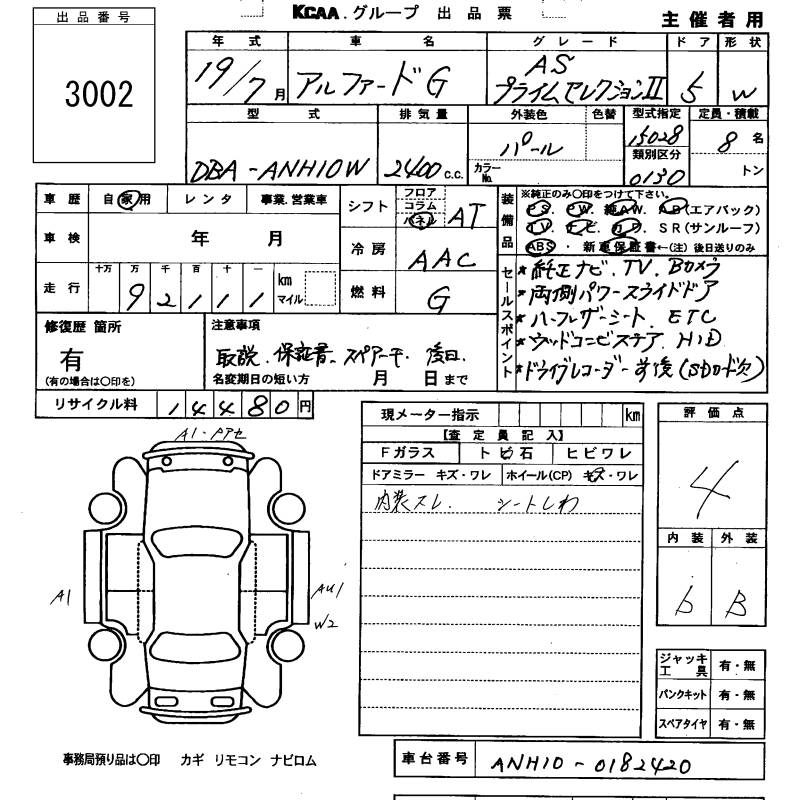 出品番号
3002
KCAA.グループ 出品票
主催者用
年式 車名 グレード ドア 形状
19/7月 アルファードG AS プライムセレクションII 5 W
型式 排気量 外装色 色替 型式指定 定員・積載
DBA-ANH10W 2400c.c. パール カラーNo. 15028 8名
類別区分
0130 トン
車歴 自家用 レンタ 事業.営業車
シフト フロア コラム パネル AT
車検 年 月
冷房 AAC
走行 十万 万 千 百 十 一
92111 km マイル
燃料 G
装備品 ※純正のみ〇印をつけて下さい。
PS. PW. 純AW. AB(エアバック)
TV. ナビ. カワ. SR(サンルーフ)
ABS・新車保証書←(注)後日送りのみ
セールスポイント
*純正ナビ. TV. Bカメラ
*両側パワースライドドア
*ハーフレザーシート. ETC
*ウッドコンビステア. HID
*ドライブレコーダー前後(SDカード欠)
修復歴 箇所
有
(有の場合は〇印を)
注意事項
取説. 保証書. スペアーキー 後日.
名変期日の短い方 月 日まで
リサイクル料 14480円
現メーター指示 km
【査定員記入】
Fガラス トビ石 ヒビワレ
ドアミラー キズ・ワレ ホイール(CP) キズ・ワレ
内装スレ. シートしわ
評価点
4
内装 外装
b B
A1
A1
AU1
W2
ジャッキ工具 有・無
パンクキット 有・無
スペアタイヤ 有・無
事務局預り品は〇印 カギ リモコン ナビロム
車台番号 ANH10-0182420